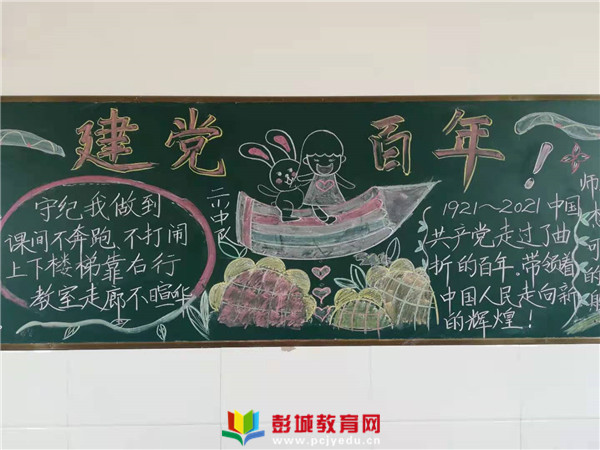 建党百年！
守纪我做到
课间不奔跑、不打闹
上下楼梯靠右行
教室走廊不暄哗
中队
1921～2021中国
共产党走过了曲
折的百年,带领着
中国人民走向新
的辉煌！
师
可
的
彭城教育网
www.pcjyedu.cn